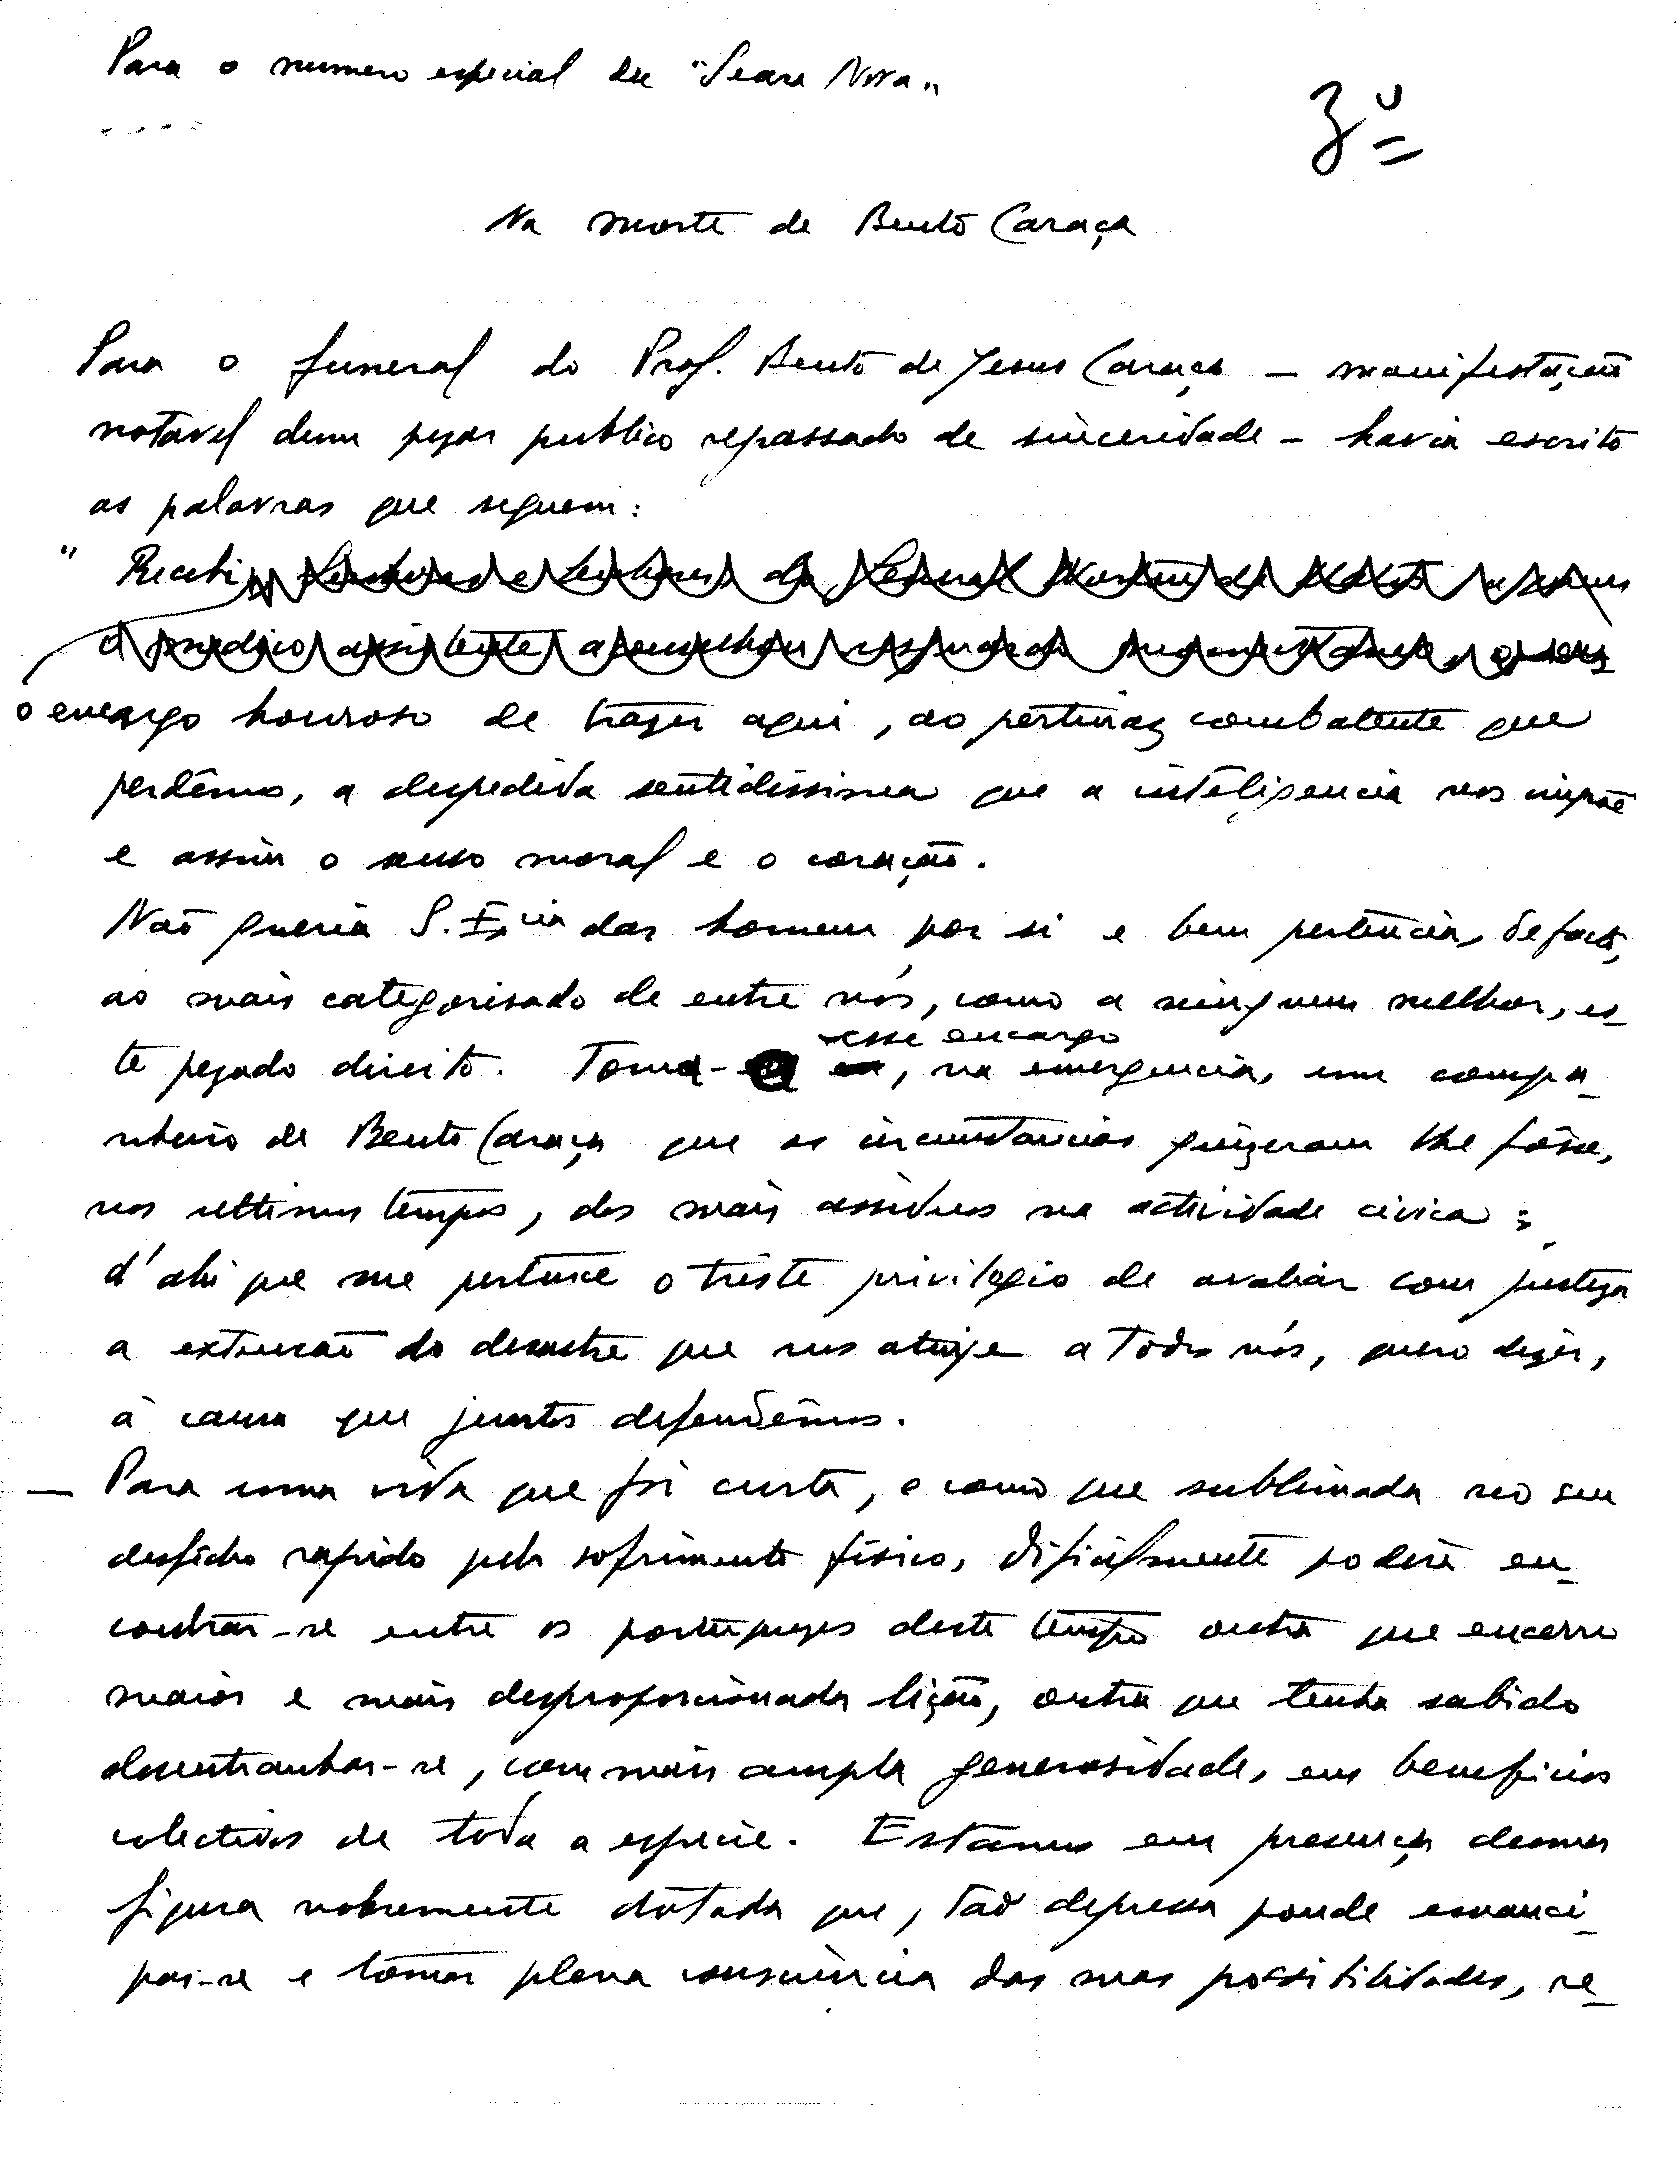 Para o numero especial da "Seara Nova"
3º
Na morte de Bento Caraça
Para o funeral do Prof. Bento de Jesus Caraça — manifestação
notavel dum pezar publico repassado de sinceridade — havia escrito
as palavras que seguem:
" Recebi
o medico assistente aconselhou
o encargo honroso de trazer aqui, ao pertinaz combatente que
perdêmos, a despedida sentidissima que a inteligencia nos impõe
e assim o senso moral e o coração.
Não queria S. Ex.cia dar homem por si e bem pertencia, de facto,
ao mais categorisado de entre nós, como a ninguem melhor, es-
te pezado direito. Toma- esse encargo, na emergencia, um compa-
nheiro de Bento Caraça que as circunstancias quizeram lhe fôsse,
nos ultimos tempos, dos mais assiduos na actividade civica;
d'ahi que me pertence o triste privilegio de avaliar com justeza
a extensão do desastre que nos atinge a todos nós, quero dizer,
á causa que juntos defendêmos.
— Para uma vida que foi curta, e como que sublimada no seu
desfecho rapido pelo sofrimento fisico, dificilmente poderá en-
contrar-se entre os portuguezes deste tempo outra que encerre
maior e mais desproporcionada lição, outra que tenha sabido
desentranhar-se, com mais ampla generosidade, em beneficios
colectivos de toda a especie. Estamos em presença duma
figura nobremente dotada que, tão depressa poude emanci-
par-se e tomar plena consciencia das suas possibilidades, re-